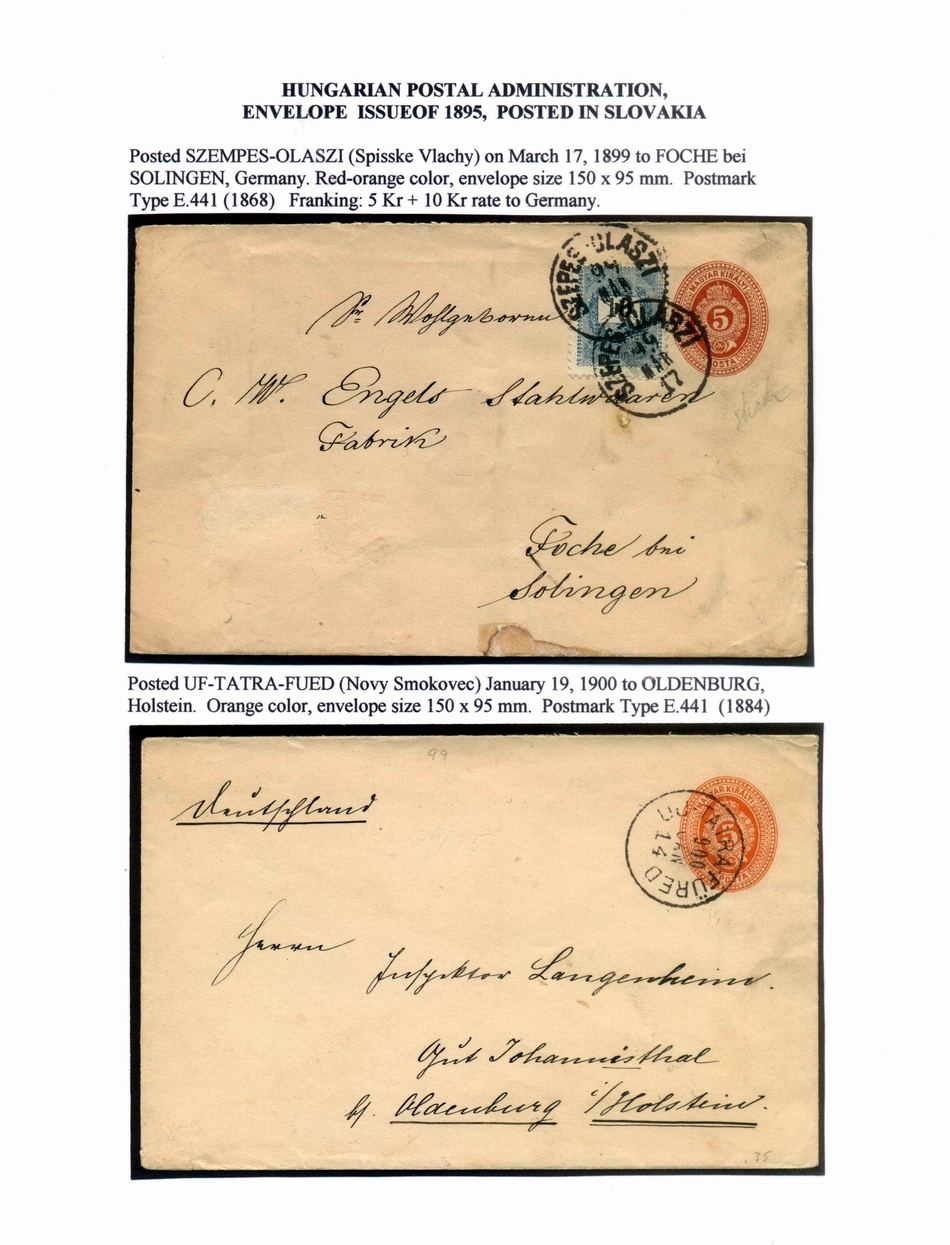 HUNGARIAN POSTAL ADMINISTRATION,
ENVELOPE ISSUEOF 1895, POSTED IN SLOVAKIA
Posted SZEMPES-OLASZI (Spisske Vlachy) on March 17, 1899 to FOCHE bei
SOLINGEN, Germany. Red-orange color, envelope size 150 x 95 mm. Postmark
Type E.441 (1868) Franking: 5 Kr + 10 Kr rate to Germany.
SZEPES-OLASZI
MAGYAR KIRÁLYI
5
POSTA
10
SZEPES-OLASZI
MAR
17
Sr Wohlgeboren
C. W. Engels Stahlwaaren
Fabrik
Foche bei
Solingen
Posted UF-TATRA-FUED (Novy Smokovec) January 19, 1900 to OLDENBURG,
Holstein. Orange color, envelope size 150 x 95 mm. Postmark Type E.441 (1884)
99
Deutschland
MAGYAR KIRÁLYI
5
POSTA
UJ-TÁTRA FÜRED
900
JAN
14
Herrn
Inspektor Langenheim.
Gut Johannisthal
b/. Oldenburg i/Holstein.
35